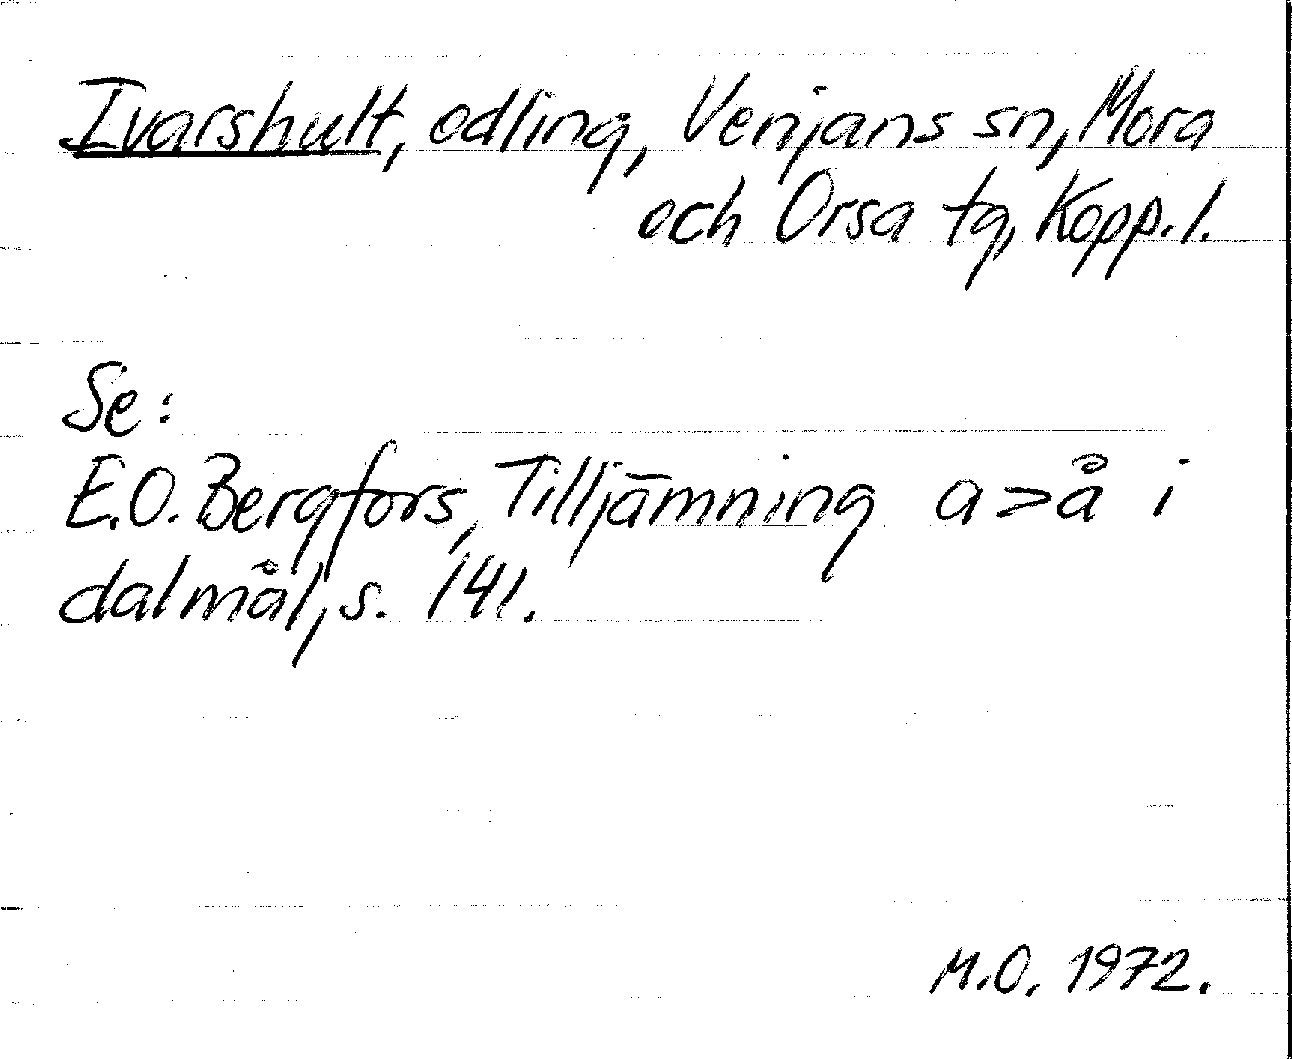 Ivarshult, odling, Venjans sn, Mora
och Orsa tg, Kopp. l.
Se:
E.O. Bergfors, Tilljämning a>å i
dalmål, s. 141.
M.O. 1972.